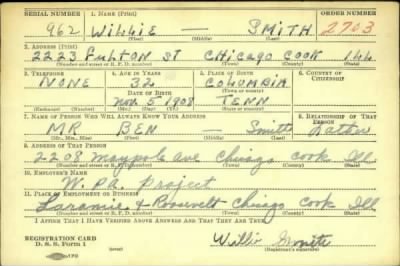 SERIAL NUMBER 1. NAME (Print) ORDER NUMBER
962 WILLIE — SMITH 2703
(First) (Middle) (Last)
2. ADDRESS (Print)
2223 FULTON ST CHICAGO COOK Ill
(Number and street or R. F. D. number) (Town) (County) (State)
3. TELEPHONE 4. AGE IN YEARS 5. PLACE OF BIRTH 6. COUNTRY OF CITIZENSHIP
NONE 32 COLUMBIA
DATE OF BIRTH (Town or county)
Nov 5 1908 TENN
(Exchange) (Number) (Mo.) (Day) (Yr.) (State or country)
7. NAME OF PERSON WHO WILL ALWAYS KNOW YOUR ADDRESS 8. RELATIONSHIP OF THAT PERSON
MR BEN — Smith Father
(Mr., Mrs., Miss) (First) (Middle) (Last)
9. ADDRESS OF THAT PERSON
2208 Maypole Ave Chicago Cook Ill
(Number and street or R. F. D. number) (Town) (County) (State)
10. EMPLOYER'S NAME
Project
11. PLACE OF EMPLOYMENT OR BUSINESS
Laramie & Roosevelt Chicago Cook Ill
(Number and street or R. F. D. number) (Town) (County) (State)
I AFFIRM THAT I HAVE VERIFIED ABOVE ANSWERS AND THAT THEY ARE TRUE.
REGISTRATION CARD
D. S. S. Form 1 Willie Smith
(Registrant's signature)